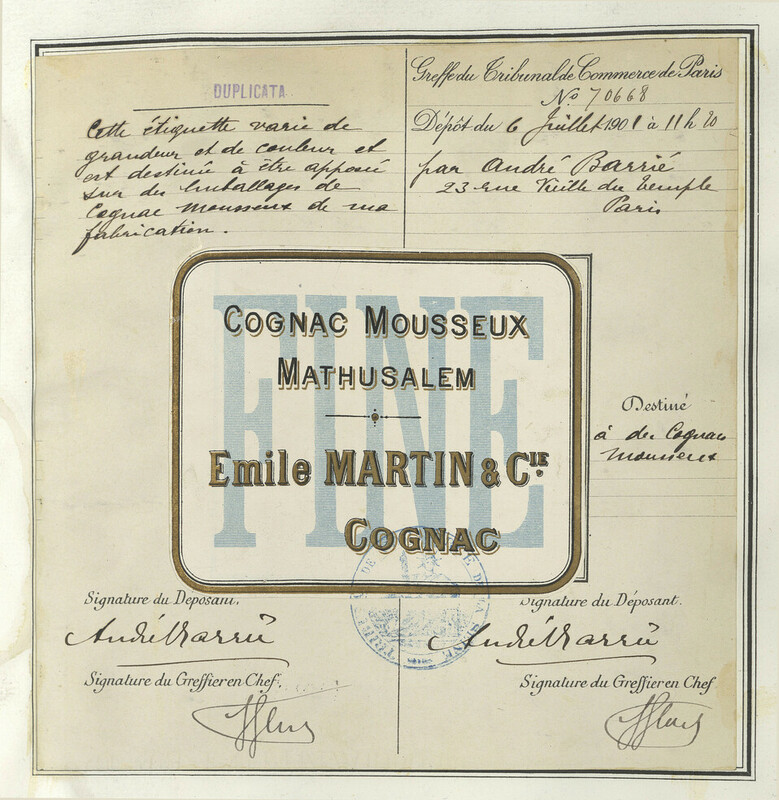 DUPLICATA
Cette étiquette varie de
grandeur et de couleur et
est destinée à être apposée
sur des Emballages de
Cognac mousseux de ma
fabrication.
Greffe du Tribunal de Commerce de Paris
No 70668
Dépôt du 6 Juillet 1901 à 11 h 20
par André Barrié
23 rue Vieille du Temple
Paris
FINE
COGNAC MOUSSEUX
MATHUSALEM
Emile MARTIN & CIE
COGNAC
Destiné
à des Cognac
mousseux
Signature du Déposant.
Signature du Déposant.
André Barrié
André Barrié
Signature du Greffier en Chef.
Signature du Greffier en Chef